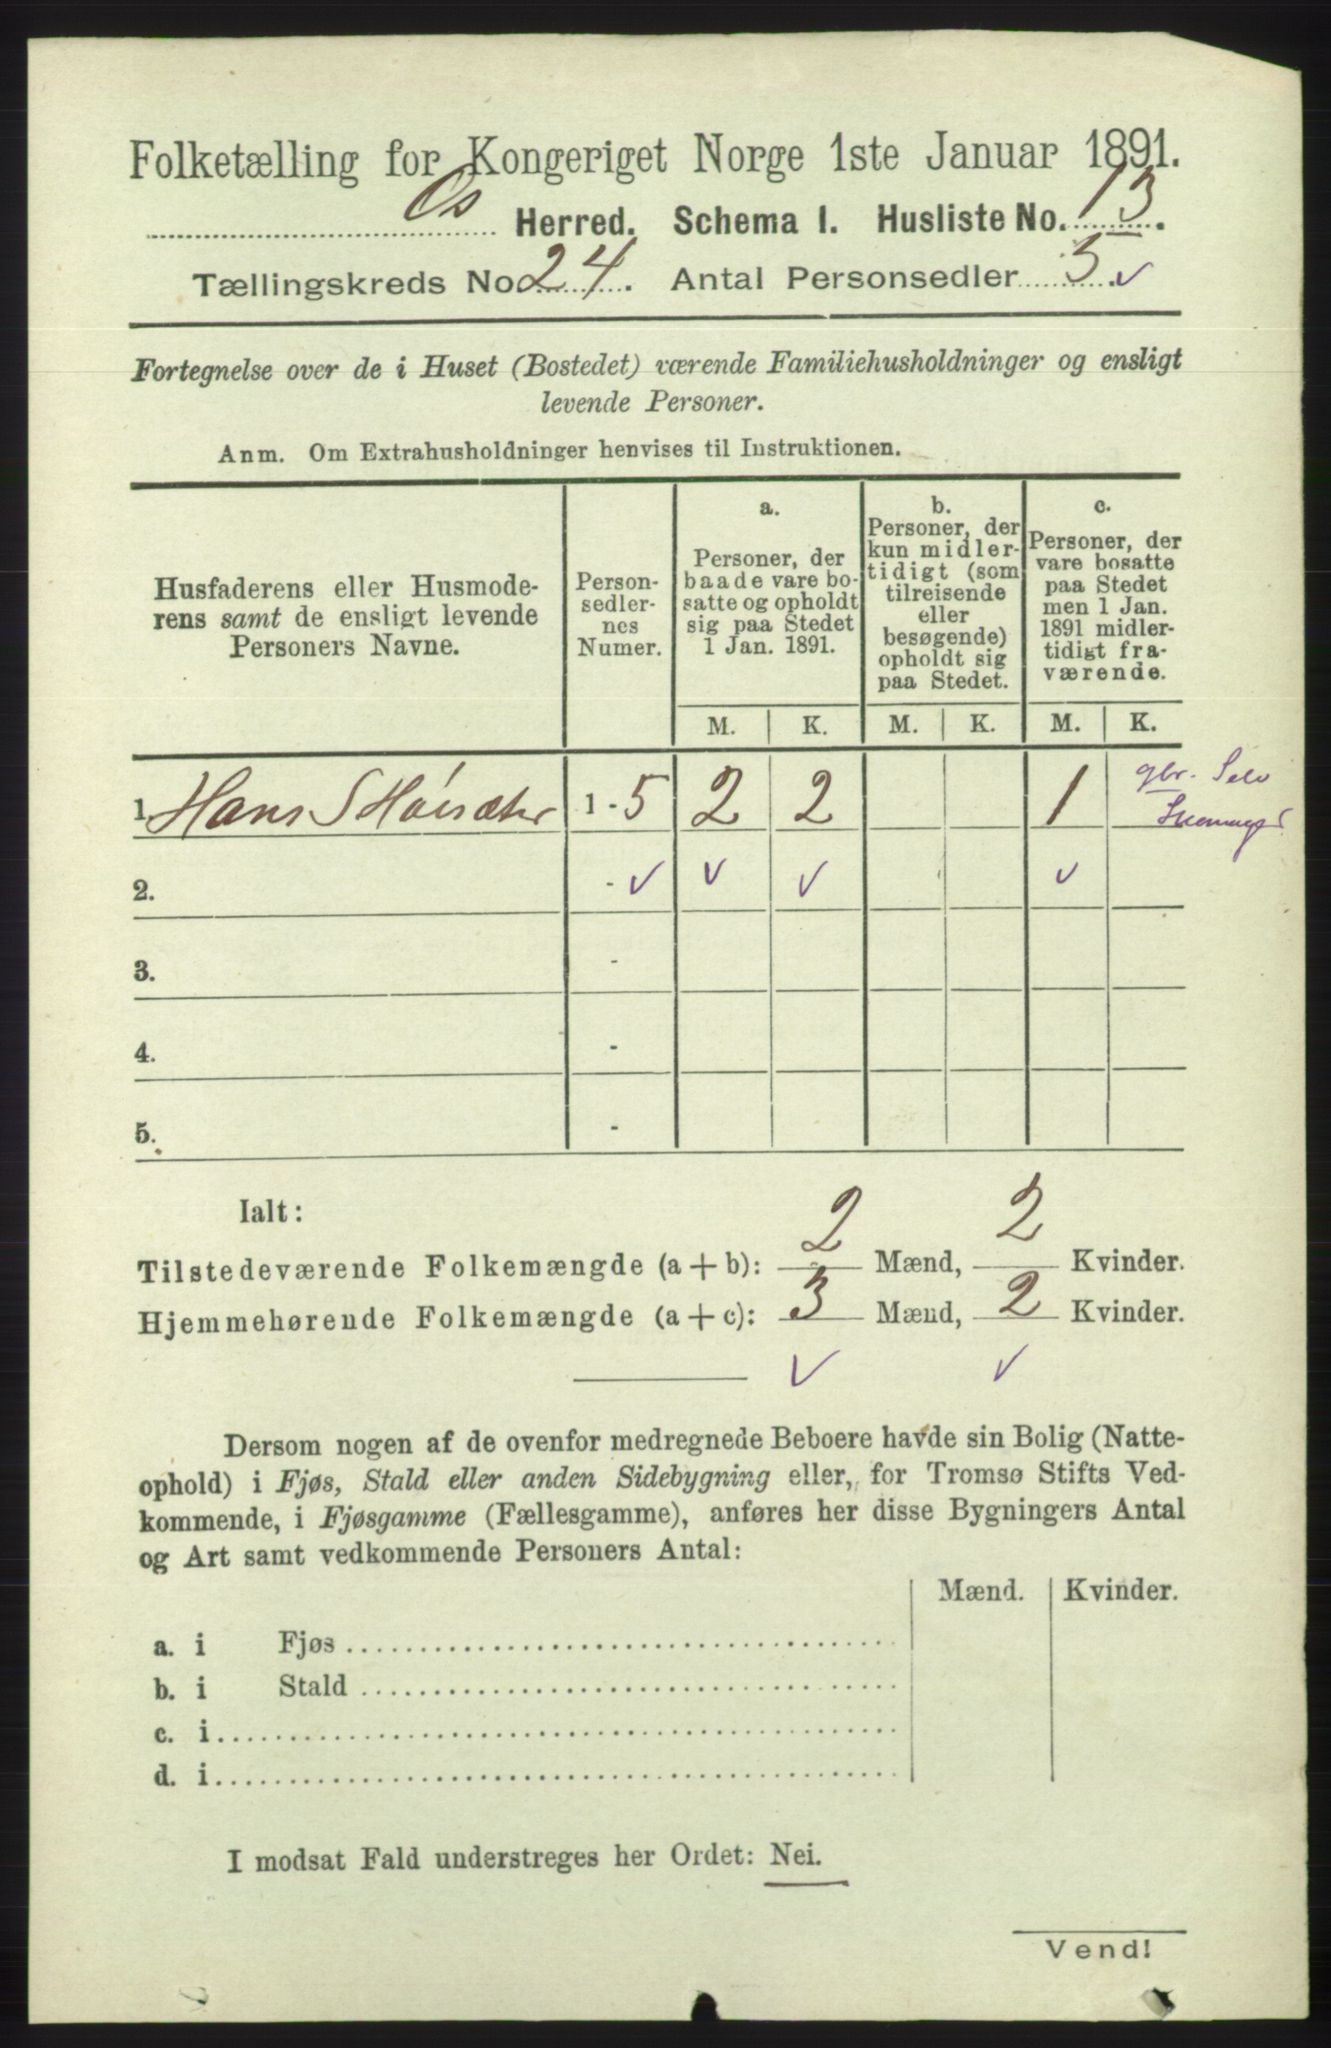 Folketælling for Kongeriget Norge 1ste Januar 1891.
Os Herred. Schema I. Husliste No. 13.
Tællingskreds No. 24. Antal Personsedler 5 ✓
Fortegnelse over de i Huset (Bostedet) værende Familiehusholdninger og ensligt
levende Personer.
Anm. Om Extrahusholdninger henvises til Instruktionen.
Husfaderens eller Husmode-
rens samt de ensligt levende
Personers Navne.
Person-
sedler-
nes
Numer.
a.
Personer, der
baade vare bo-
satte og opholdt
sig paa Stedet
1 Jan. 1891.
b.
Personer, der
kun midler-
tidigt (som
tilreisende
eller
besøgende)
opholdt sig
paa Stedet.
c.
Personer, der
vare bosatte
paa Stedet
men 1 Jan.
1891 midler-
tidigt fra-
værende.
M. K. M. K. M. K.
1. Hans S 1 - 5 2 2 1 gbr. Selv
2. - ✓ ✓ ✓ ✓
3. -
4. -
5. -
Ialt:
Tilstedeværende Folkemængde (a + b): 2 Mænd, 2 Kvinder.
Hjemmehørende Folkemængde (a + c): 3 Mænd, 2 Kvinder.
✓ ✓
Dersom nogen af de ovenfor medregnede Beboere havde sin Bolig (Natte-
ophold) i Fjøs, Stald eller anden Sidebygning eller, for Tromsø Stifts Ved-
kommende, i Fjøsgamme (Fællesgamme), anføres her disse Bygningers Antal
og Art samt vedkommende Personers Antal:
Mænd. Kvinder.
a. i Fjøs
b. i Stald
c. i
d. i
I modsat Fald understreges her Ordet: Nei.
Vend!